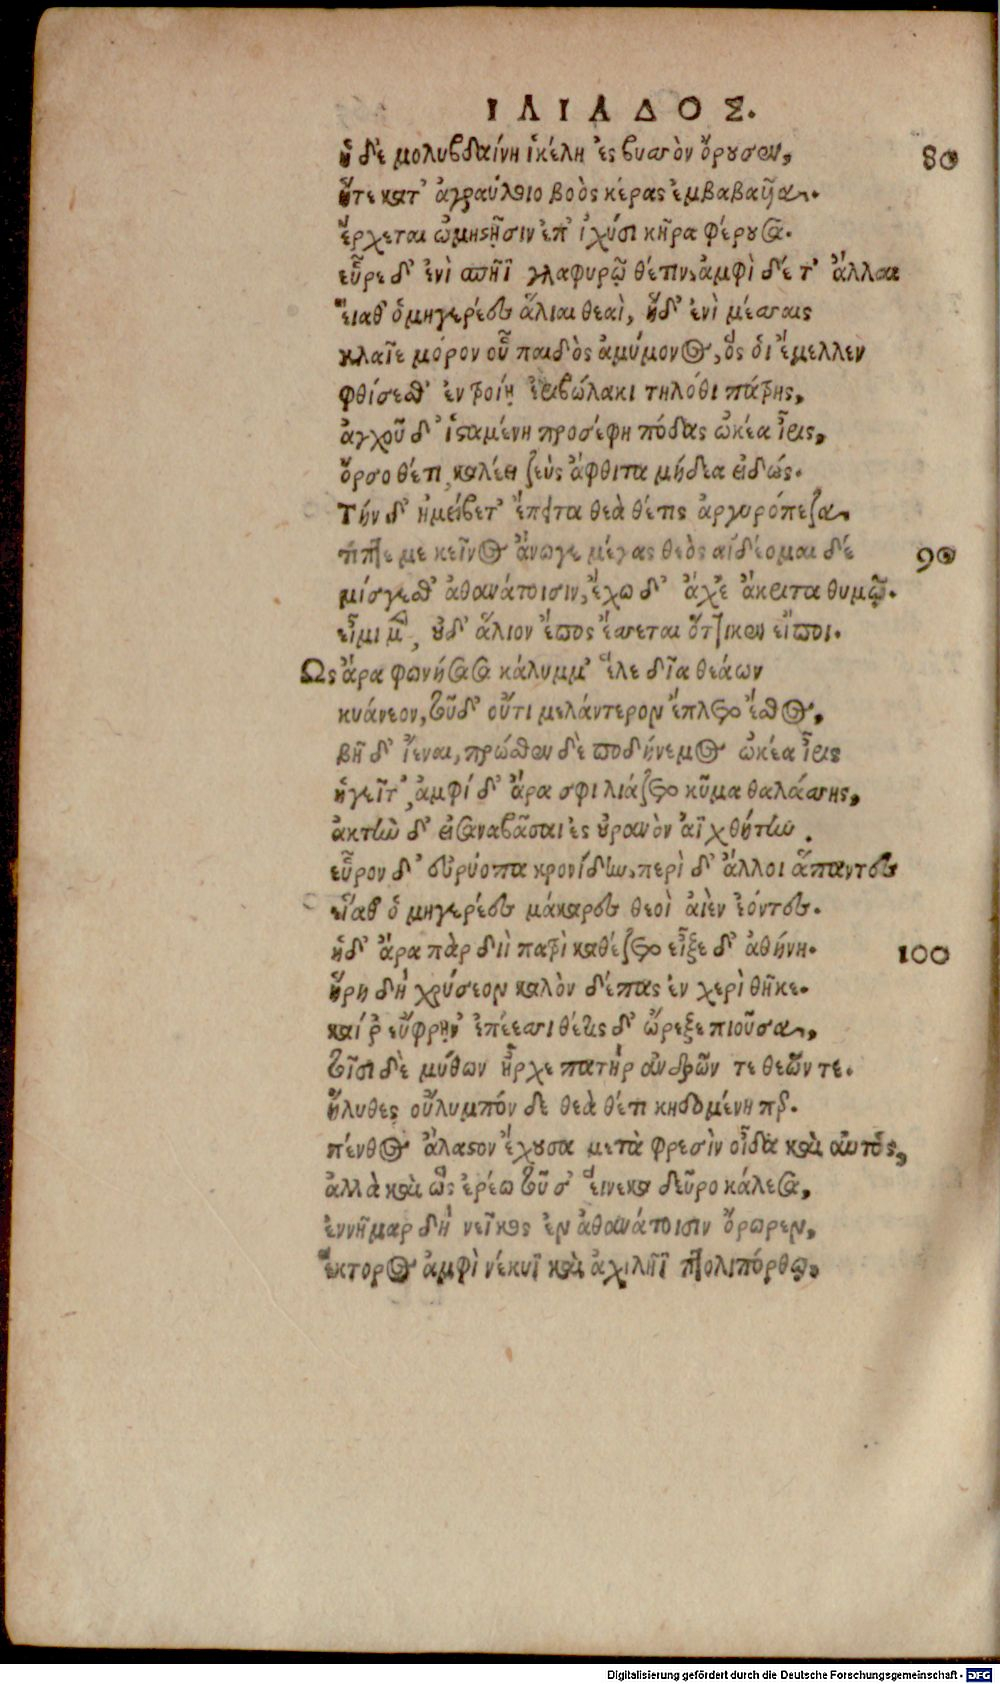 ΙΛΙΑΔΟΣ.
ἡ δὲ μολυβδαίνῃ ἰκέλη ἐς βυσσὸν ὄρουσεν, 80
ἥτε κατ' ἀγραύλοιο βοὸς κέρας ἐμβαβαῦια.
ἔρχεται ὠμηστῇσιν ἐπ' ἰχύσι κῆρα φέρουσα.
εὗρε δ' ἐνὶ σπῆϊ γλαφυρῷ θέτιν, ἀμφὶ δέ τ' ἄλλαι
εἵαθ' ὁμηγερέες ἅλιαι θεαὶ, ἡ δ' ἐνὶ μέσσαις
κλαῖε μόρον οὗ παιδὸς ἀμύμονος, ὅς οἱ ἔμελλεν
φθίσεσθ' ἐν τροίῃ ἐριβώλακι τηλόθι πάτρης,
ἀγχοῦ δ' ἱσταμένη προσέφη πόδας ὠκέα ἶρις,
ὄρσο θέτι, καλέει ζεὺς ἄφθιτα μήδεα εἰδώς.
Τὴν δ' ἠμείβετ' ἔπειτα θεὰ θέτις ἀργυρόπεζα,
τίπτε με κεῖνος ἄνωγε μέγας θεὸς αἰδέομαι δέ 90
μίσγεσθ' ἀθανάτοισιν, ἔχω δ' ἄχε' ἄκριτα θυμῷ.
εἶμι μὲν, οὐδ' ἅλιον ἔπος ἔσσεται ὅττι κεν εἴποι.
Ως ἄρα φωνήσασα κάλυμμ' ἕλε δῖα θεάων
κυάνεον, τοῦ δ' οὔτι μελάντερον ἔπλετο ἔσθος,
βῆ δ' ἴεναι, πρόσθεν δὲ ποδήνεμος ὠκέα ἶρις
ἡγεῖτ', ἀμφὶ δ' ἄρα σφι λιάζετο κῦμα θαλάσσης,
ἀκτὴν δ' εἰσαναβᾶσαι ἐς οὐρανὸν ἀϊχθήτην.
εὗρον δ' εὐρύοπα κρονίδην, περὶ δ' ἄλλοι ἅπαντες
εἵαθ' ὁ μηγερέες μάκαρες θεοὶ αἰὲν ἐόντες.
ἡ δ' ἄρα πὰρ διὶ πατρὶ καθέζετο εἶξε δ' ἀθήνη. 100
ἥρη δὴ χρύσεον καλὸν δέπας ἐν χερὶ θῆκε.
καί ῥ' εὔφρην' ἐπέεσσι θέτις δ' ὤρεξε πιοῦσα,
τοῖσι δὲ μύθων ἦρχε πατὴρ ἀνδρῶν τε θεῶν τε.
ἤλυθες οὔλυμπόν δε θεὰ θέτι κηδομένη περ.
πένθος ἄλαστον ἔχουσα μετὰ φρεσὶν οἶδα καὶ αὐτός,
ἀλλὰ καὶ ὣς ἐρέω τοῦ σ' εἵνεκα δεῦρο κάλεσα,
ἐννῆμαρ δὴ νεῖκος ἐν ἀθανάτοισιν ὄρωρεν,
ἕκτορος ἀμφὶ νέκυϊ καὶ ἀχιλῆϊ πτολιπόρθῳ,
Digitalisierung gefördert durch die Deutsche Forschungsgemeinschaft - DFG